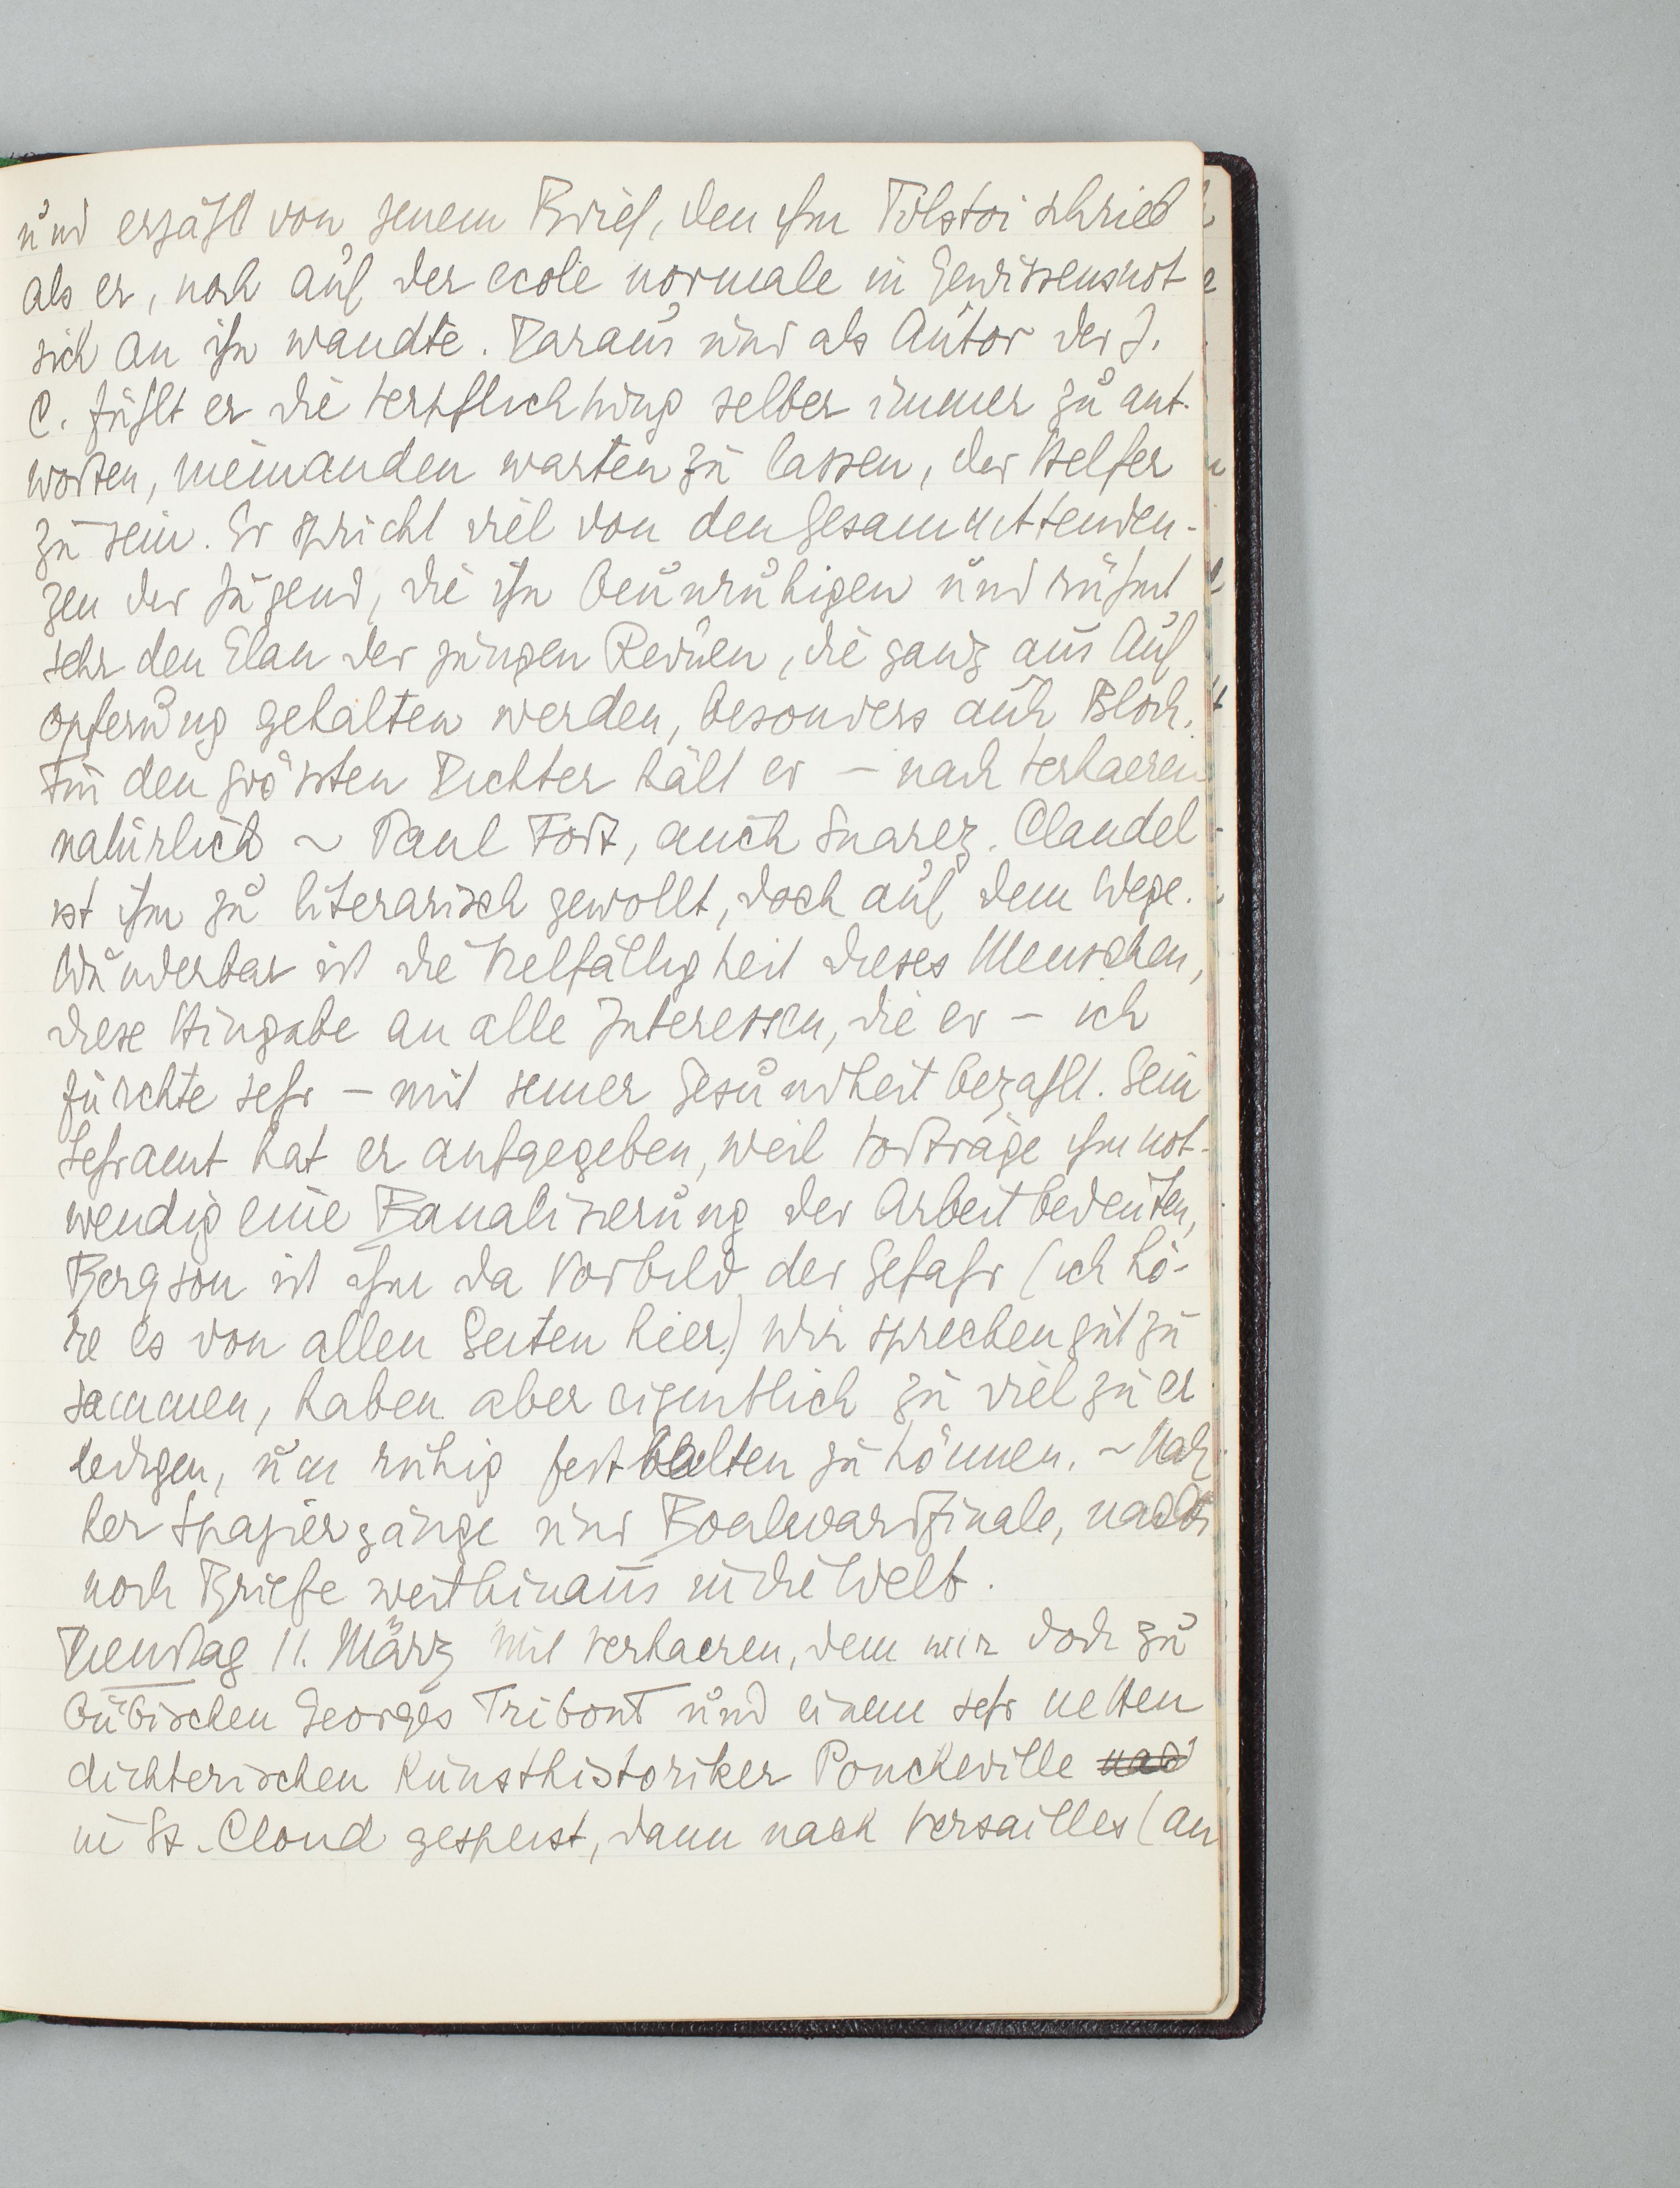 und erzählt von jenem Brief, den ihm Tolstoi schrieb
als er, noch auf der ecole normale in Gewissensnot
sich an ihn wandte. Daraus und als Autor der J.
C. fühlt er die Verpflichtung selber immer zu ant-
worten, niemanden warten zu lassen, der Helfer
zu sein. Er spricht viel von den Gesammttenden-
zen der Jugend, die ihn beunruhigen und rühmt
sehr den Elan der jungen Revuen, die ganz aus Auf
opferung gehalten werden, besonders auch Bloch.
Für den grössten Dichter hält er – nach Verhaeren
natürlich ~ Paul Fort, auch Suarez. Claudel
ist ihm zu literarisch gewollt, doch auf dem Wege.
Wunderbar ist die Vielfältigkeit dieses Menschen,
diese Hingabe an alle Interessen, die er – ich
fürchte sehr – mit seiner Gesundheit bezahlt. Sein
Lehramt hat er aufgegeben, weil Vorträge ihm not-
wendig eine Banalisierung der Arbeit bedeuten,
Bergson ist ihm da Vorbild der Gefahr (ich hö-
re es von allen Seiten hier) Wir sprechen gut zu
sammen, haben aber eigentlich zu viel zu er
ledigen, um ruhig festhalten zu können. ~ Nach
her Spaziergänge und Boulevardfinale, nachts
noch Briefe weit hinaus in die Welt.
Dienstag 11. März Mit Verhaeren, dem wir doch zu
bübischen Georges Tribout und einem sehr netten
dichterischen Kunsthistoriker Ponchev​ille nach
in St. Cloud gespeist, dann nach Versailles (an